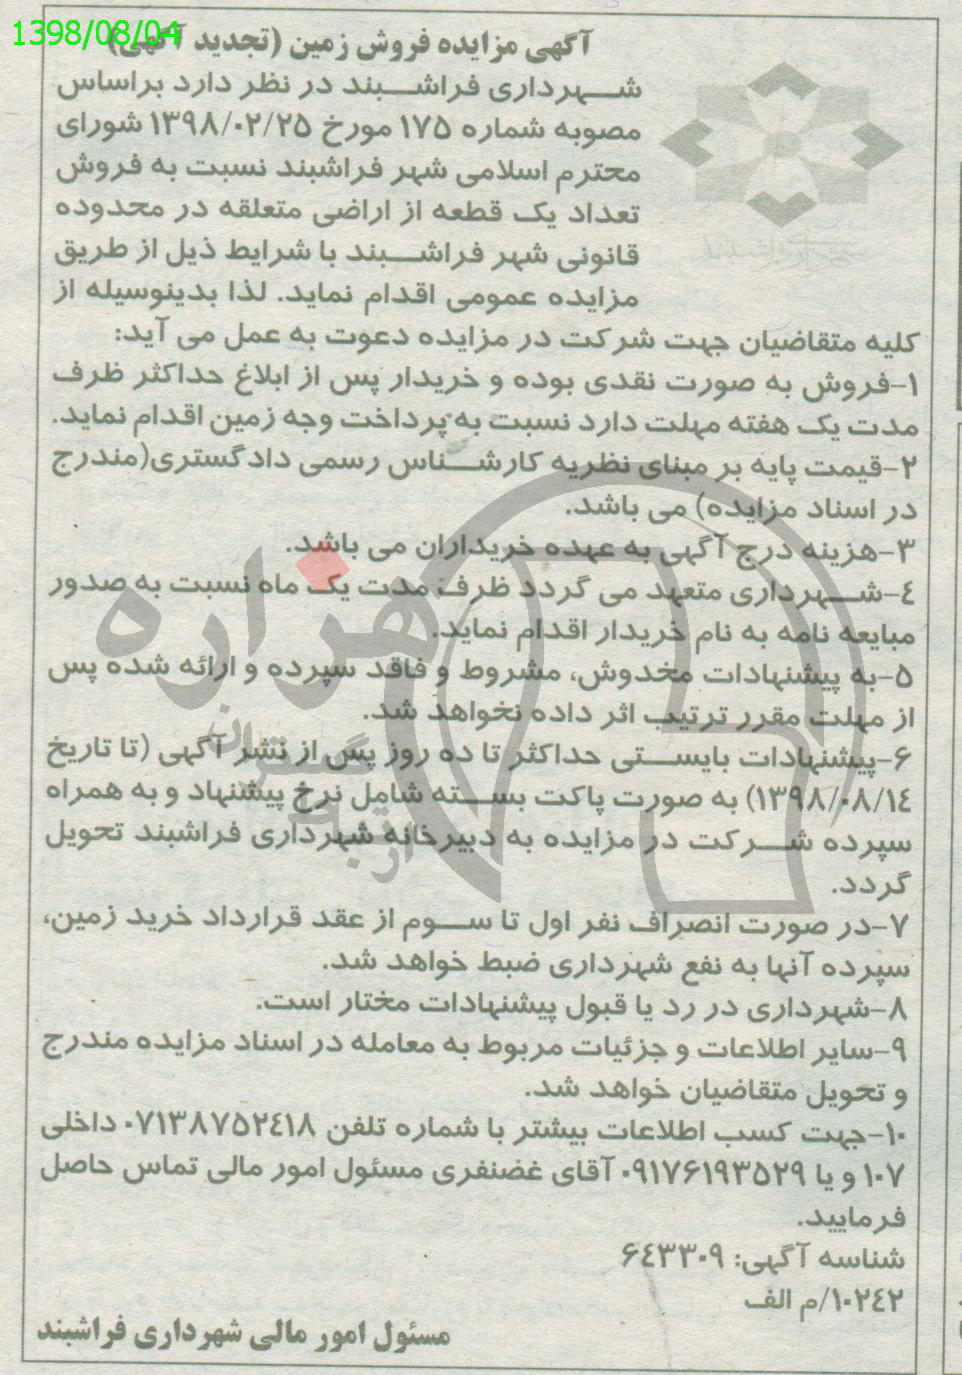 1398/08/04
آگهی مزایده فروش زمین (تجدید آگهی)
شهرداری فراشبند در نظر دارد براساس
مصوبه شماره ۱۷۵ مورخ ۱۳۹۸/۰۲/۲۵ شورای
محترم اسلامی شهر فراشبند نسبت به فروش
تعداد یک قطعه از اراضی متعلقه در محدوده
قانونی شهر فراشبند با شرایط ذیل از طریق
مزایده عمومی اقدام نماید. لذا بدینوسیله از
کلیه متقاضیان جهت شرکت در مزایده دعوت به عمل می آید:
۱-فروش به صورت نقدی بوده و خریدار پس از ابلاغ حداکثر ظرف
مدت یک هفته مهلت دارد نسبت به پرداخت وجه زمین اقدام نماید.
۲-قیمت پایه بر مبنای نظریه کارشناس رسمی دادگستری(مندرج
در اسناد مزایده) می باشد.
۳-هزینه درج آگهی به عهده خریداران می باشد.
۴-شهرداری متعهد می گردد ظرف مدت یک ماه نسبت به صدور
مبایعه نامه به نام خریدار اقدام نماید.
۵-به پیشنهادات مخدوش، مشروط و فاقد سپرده و ارائه شده پس
از مهلت مقرر ترتیب اثر داده نخواهد شد.
۶-پیشنهادات بایستی حداکثر تا ده روز پس از نشر آگهی (تا تاریخ
۱۳۹۸/۰۸/۱۴) به صورت پاکت بسته شامل نرخ پیشنهاد و به همراه
سپرده شرکت در مزایده به دبیرخانه شهرداری فراشبند تحویل
گردد.
۷-در صورت انصراف نفر اول تا سوم از عقد قرارداد خرید زمین،
سپرده آنها به نفع شهرداری ضبط خواهد شد.
۸-شهرداری در رد یا قبول پیشنهادات مختار است.
۹-سایر اطلاعات و جزئیات مربوط به معامله در اسناد مزایده مندرج
و تحویل متقاضیان خواهد شد.
۱۰-جهت کسب اطلاعات بیشتر با شماره تلفن ۰۷۱۳۸۷۵۲۴۱۸ داخلی
۱۰۷ و یا ۰۹۱۷۶۱۹۳۵۲۹ آقای غضنفری مسئول امور مالی تماس حاصل
فرمایید.
شناسه آگهی: ۶۴۳۳۰۹
۱۰۲۴۲/م الف
مسئول امور مالی شهرداری فراشبند
هزاره